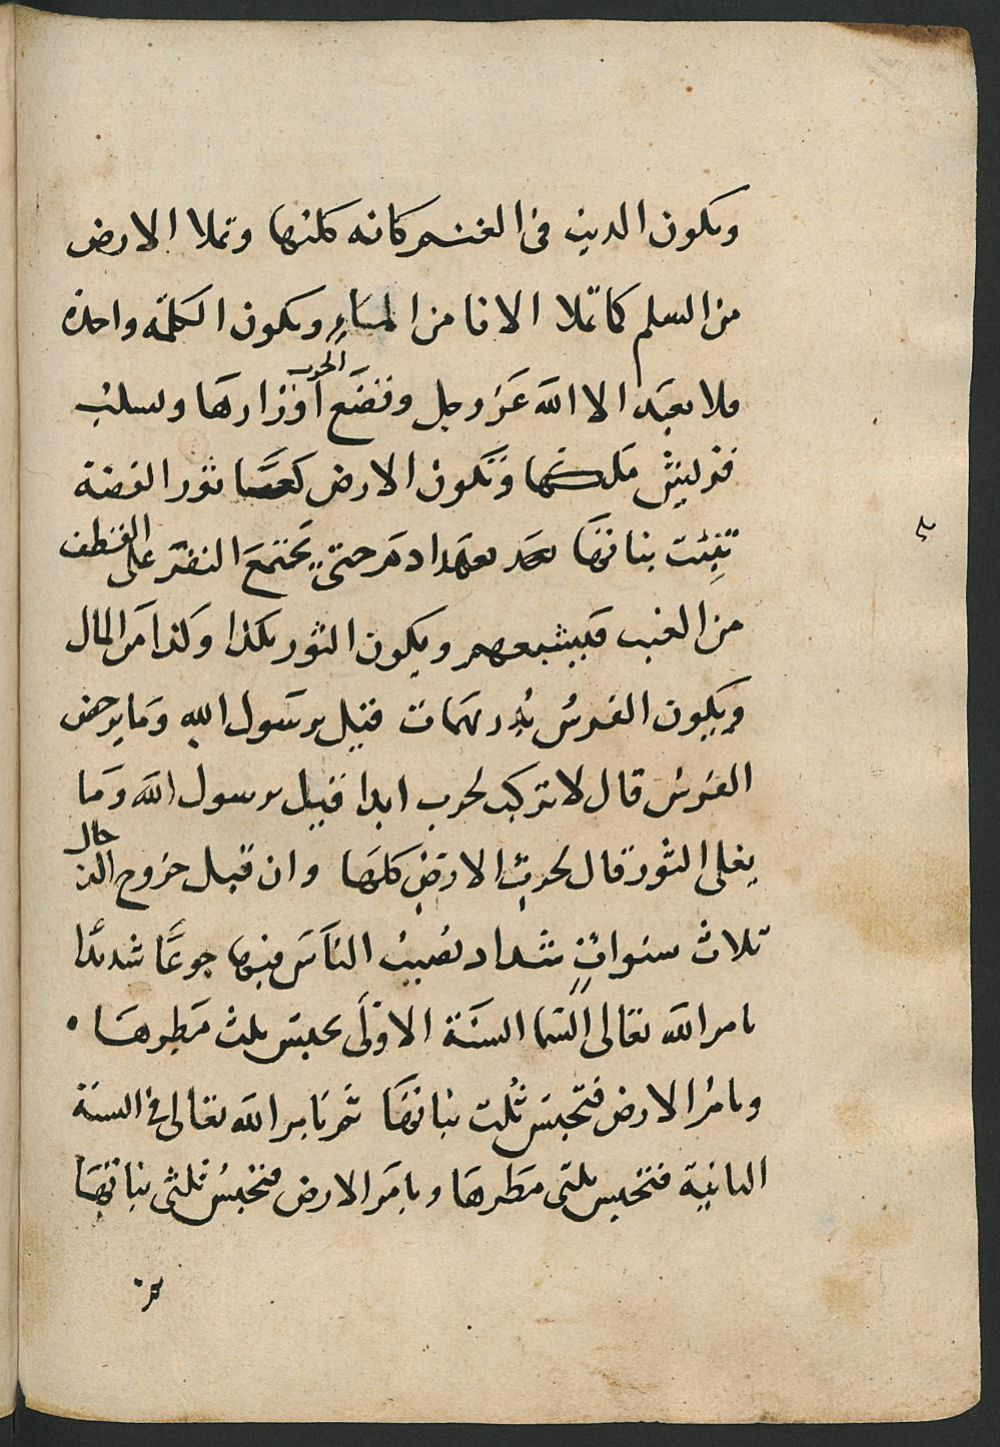 ويكون الديب فى الغنم كانه كلبها وتملا الارض
من السلم كما تملا الانا من الماء ويكون الكلمة واحدة
فلا يعبد الا الله عز وجل وتضع الحرب اوزارها وتسلب
قريش ملكها وتكون الارض كعصا ثور الفضة
تنبت نباتها بعهد ادم حتى يجتمع النفر على القطف
من العنب فيشبعهم ويكون الثور بكذا وكذا من المال
ويكون الفرس بدريهمات قيل يرسول الله وما يرخص
الفرس قال لا تركب لحرب ابدا قيل يرسول الله وما
يغلى الثور قال لحرث الارض كلها وان قبل خروج الدجال
ثلاث سنوات شداد تصيب الناس فيها جوعا شديدا
يامر الله تعالى السما السنة الاولى تحبس ثلث مطرها
ويامر الارض فتحبس ثلث نباتها ثم يامر الله تعالى فى السنة
الثانية فتحبس ثلثى مطرها ويامر الارض فتحبس ثلثى نباتها
ثم